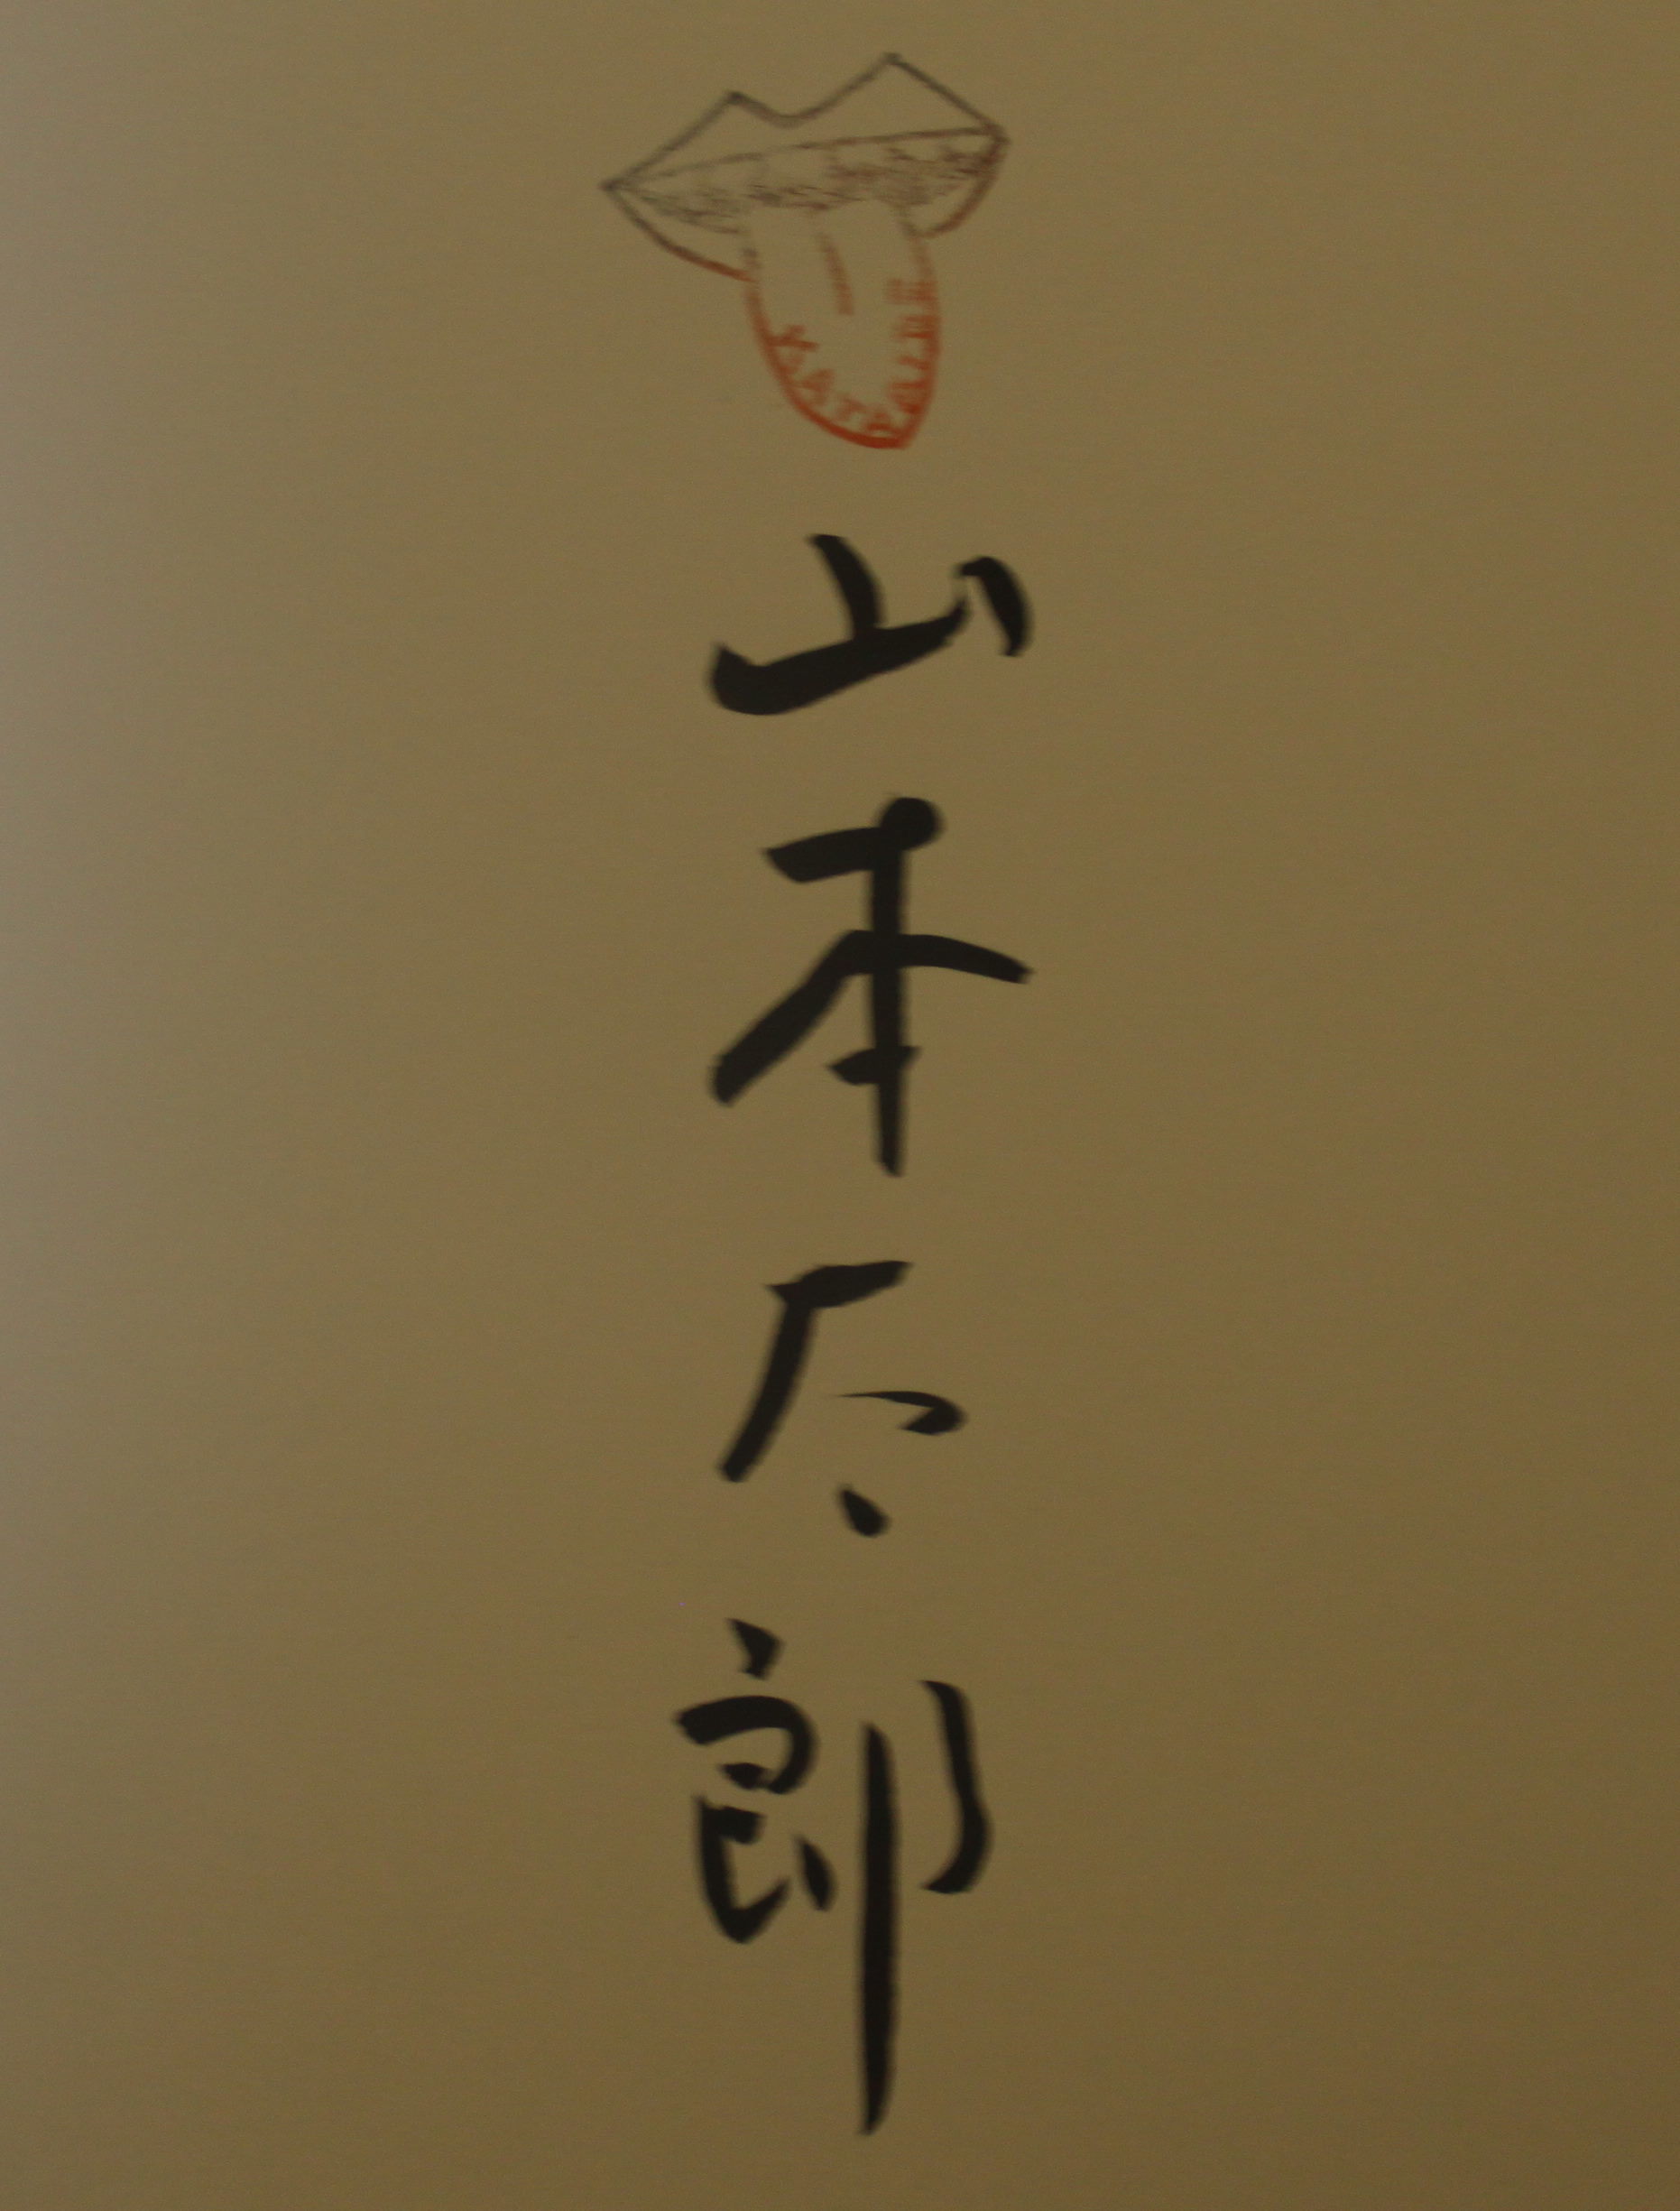 山本太郎